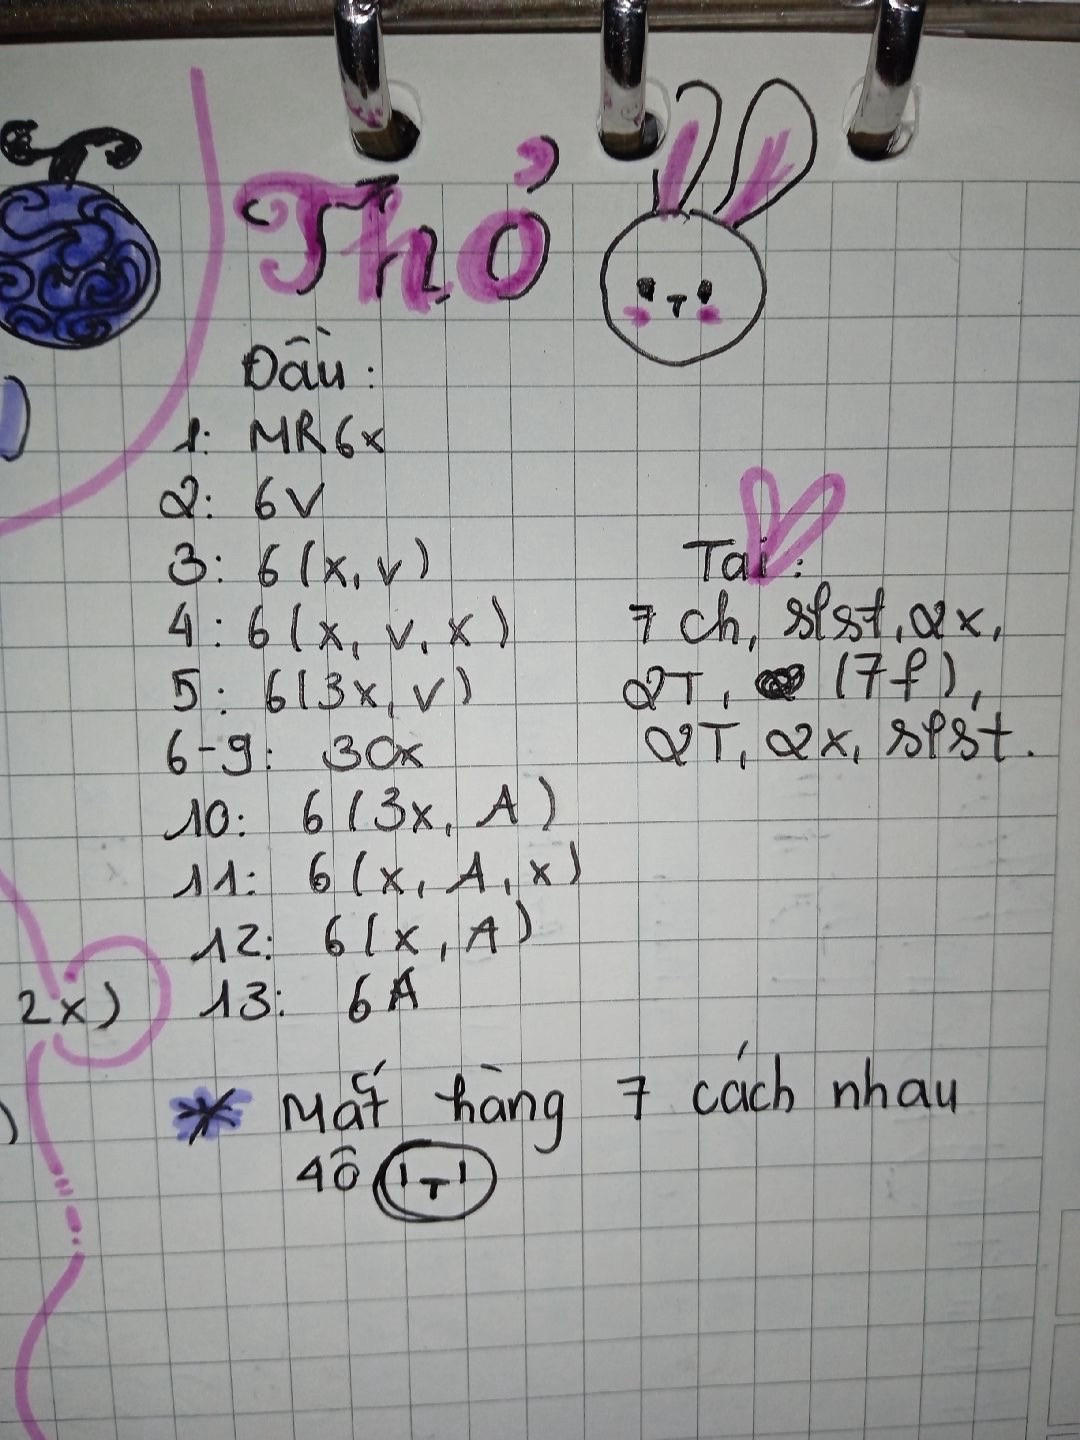 Thỏ
Đầu:
1: MR6x
2: 6V
3: 6(x, v)
4: 6(x, v, x)
5: 6(3x, v)
6-9: 30x
10: 6(3x, A)
11: 6(x, A, x)
12: 6(x, A)
13: 6A
Tai:
7 ch, slst, 2x,
2T, (7f),
2T, 2x, slst.
2x)
)
* Mắt hàng 7 cách nhau
4ô